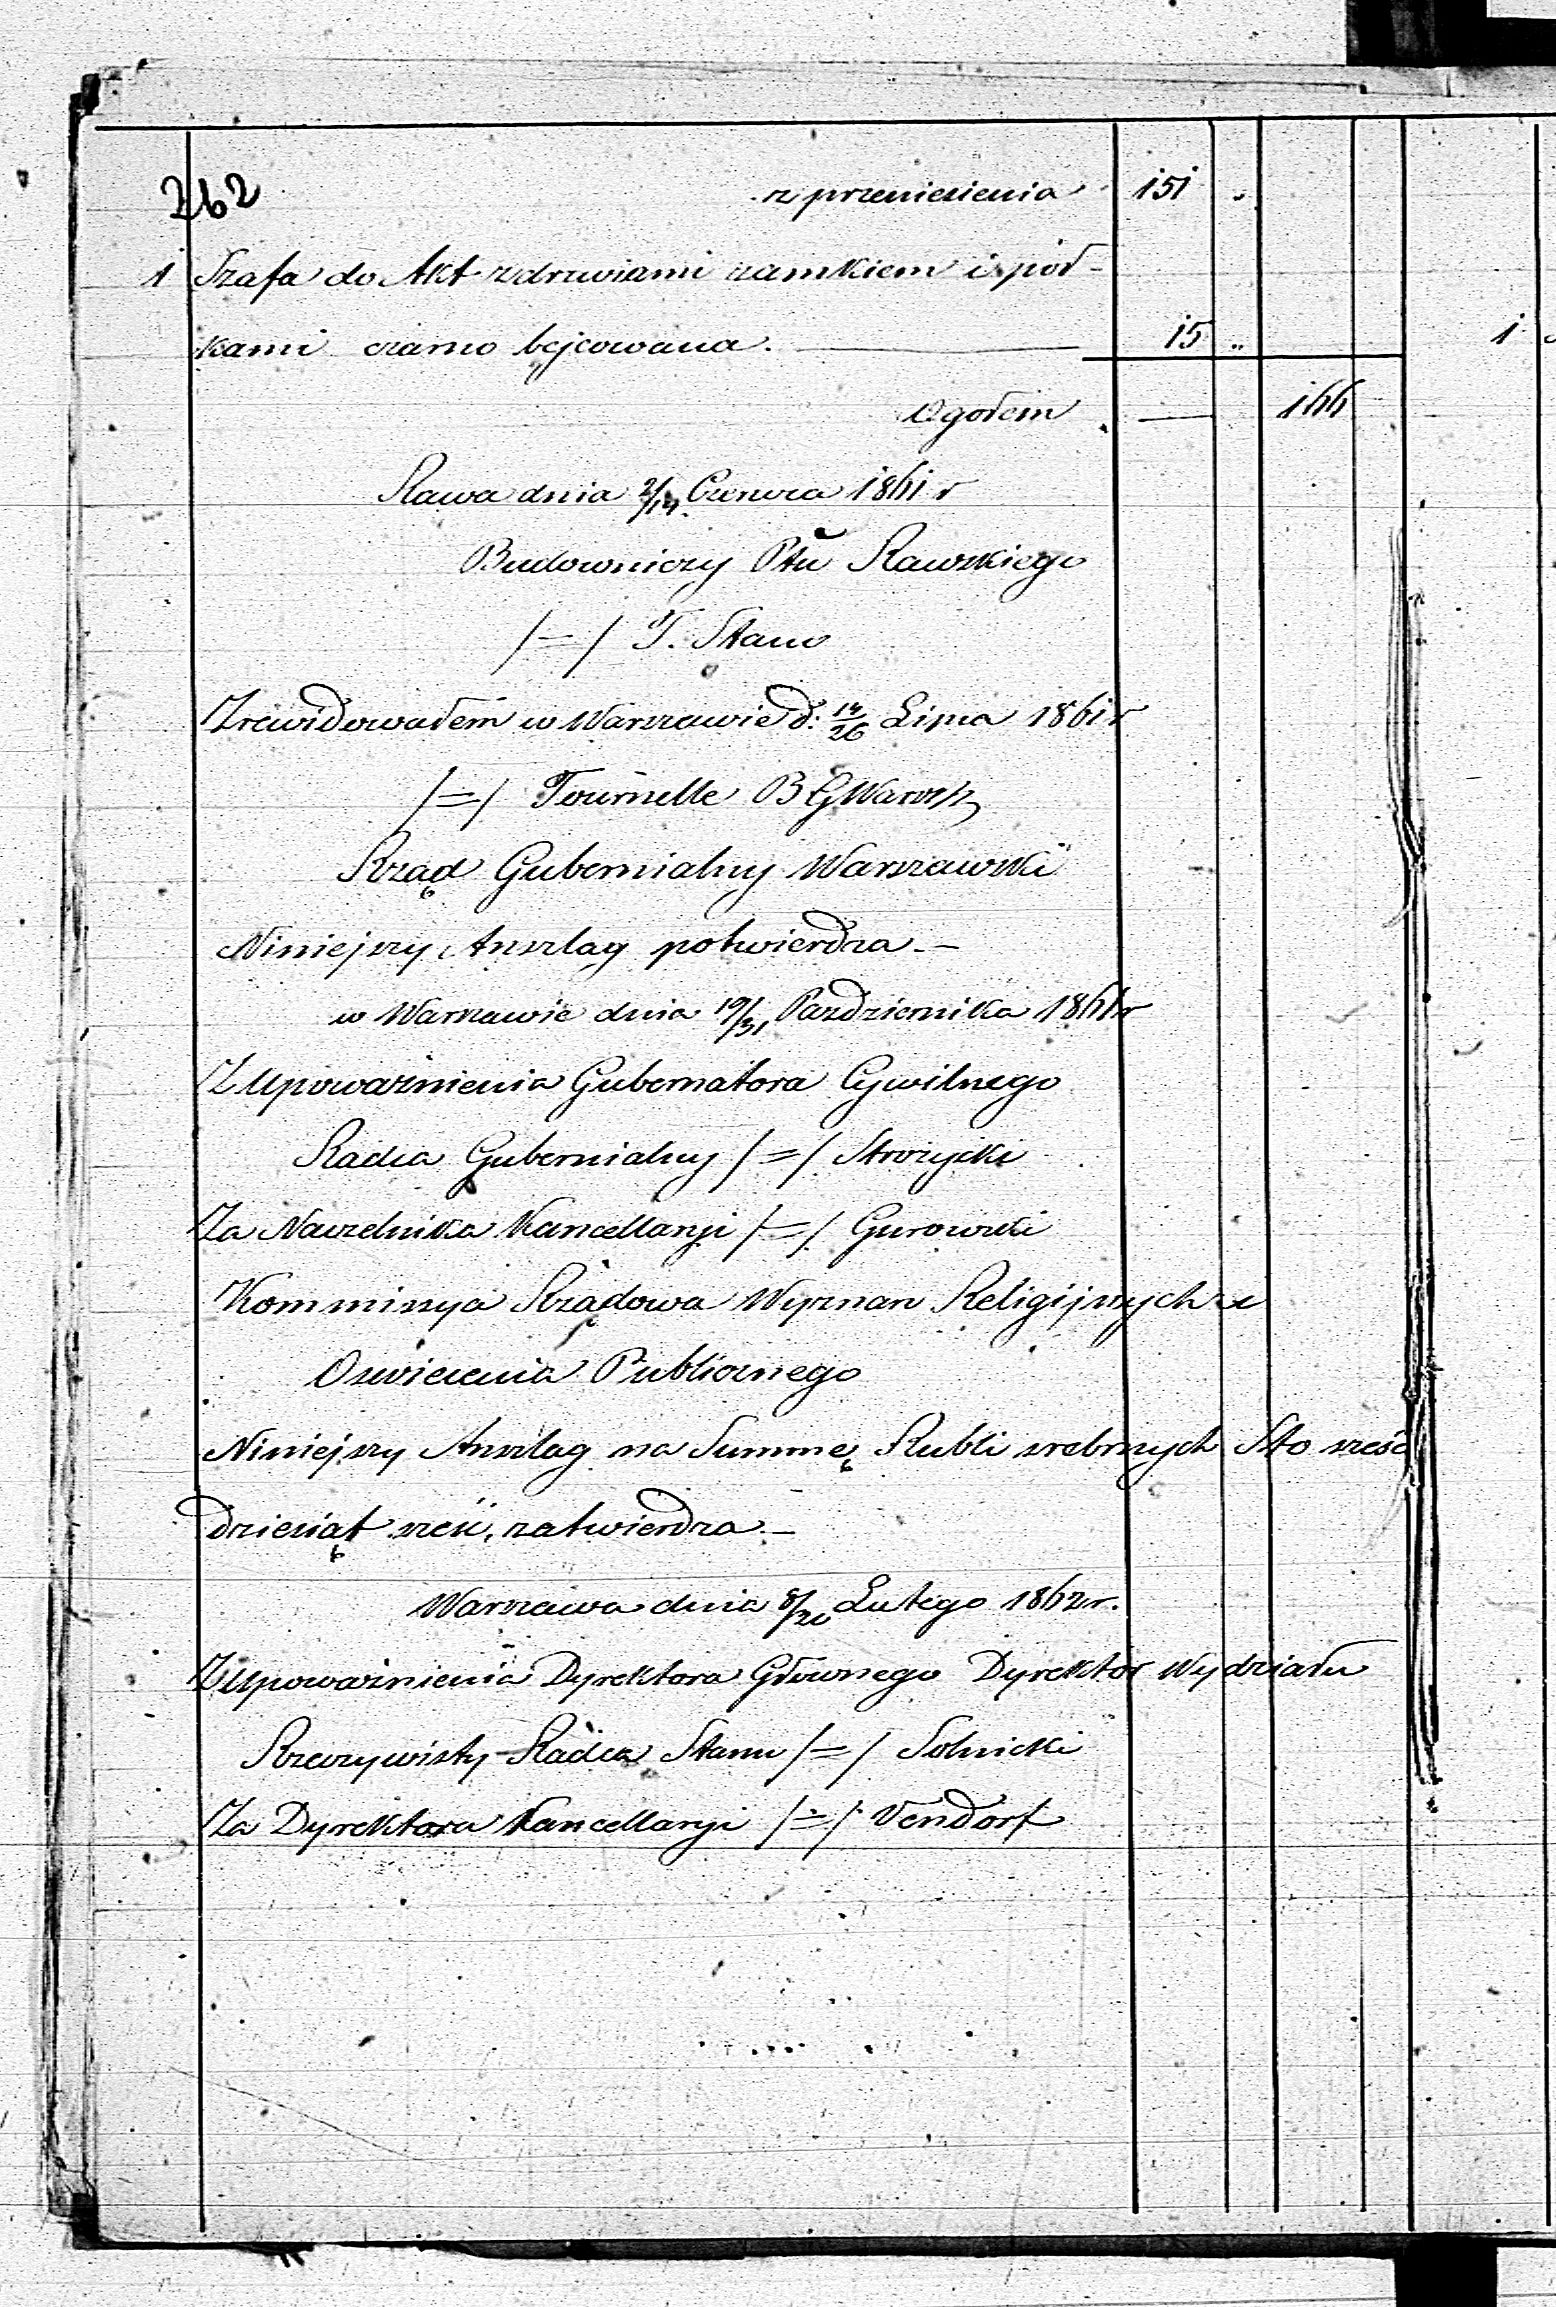 262
z przeniesienia 151 "
1 Szafa do Akt z drzwiami zamkiem i pół-
kami czarno bejcowana. 15 "
Ogołem — 166
Rawa dnia 2/14 Czerwca 1861 r
Budowniczy Ptu Rawskiego
/=/ T. Stano
Zrewidowałem w Warszawie d: 14/26 Lipca 1861 r
/=/ Tournelle B G Warsz
Rząd Gubernialny Warszawski
Niniejszy Anszlag potwierdza.—
w Warszawie dnia 19/31 Pazdziernika 1861 r
Z Upoważnienia Gubernatora Cywilnego
Radca Gubernialny /=/ Strożycki
Za Naczelnika Kancellaryi /=/ Gurowski
Kommissya Rządowa Wyznan Religijnych i
Oswiecenia Publicznego
Niniejszy Anszlag na Summę Rubli srebrnych Sto sześć
dziesiąt sześć, zatwierdza.—
Warszawa dnia 8/20 Lutego 1862 r.
Z Upoważnienia Dyrektora Głownego Dyrektor Wydziału
Rzeczywisty Radca Stanu /=/ Solnicki
Za Dyrektora Kancellaryi /=/ Vendorf